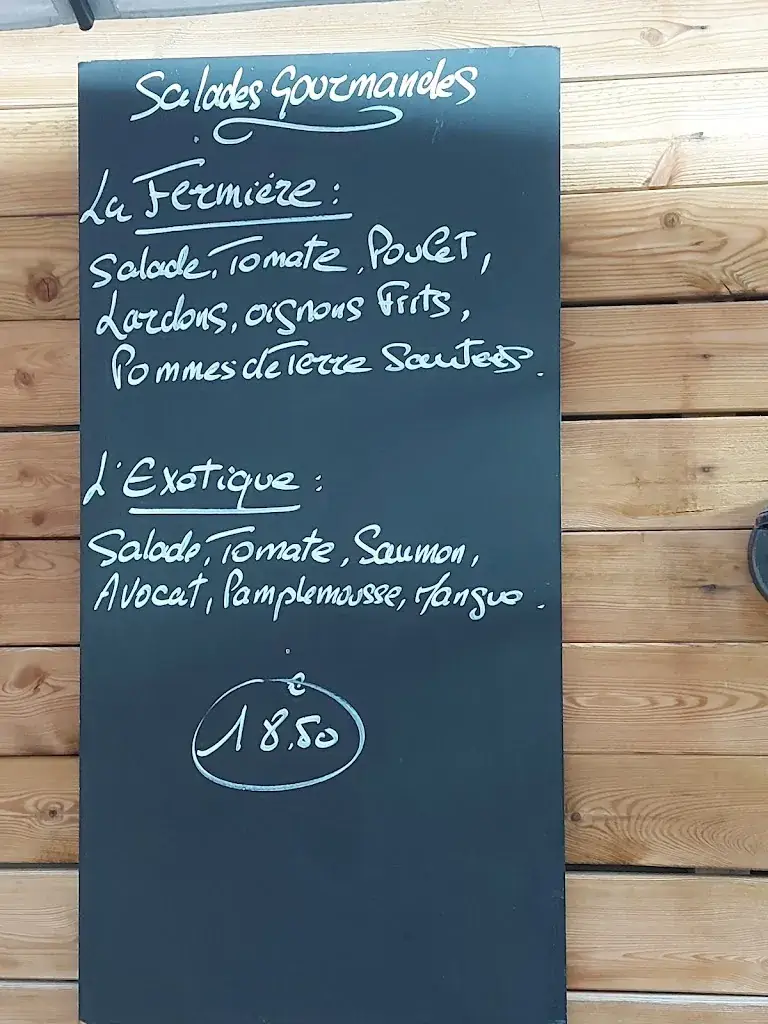 Salades Gourmandes
La Fermière :
Salade, Tomate, Poulet,
Lardons, oignons Frits,
Pommes de Terre Sautées.
L'Exotique :
Salade, Tomate, Saumon,
Avocat, Pamplemousse, Mangue.
€
18.50